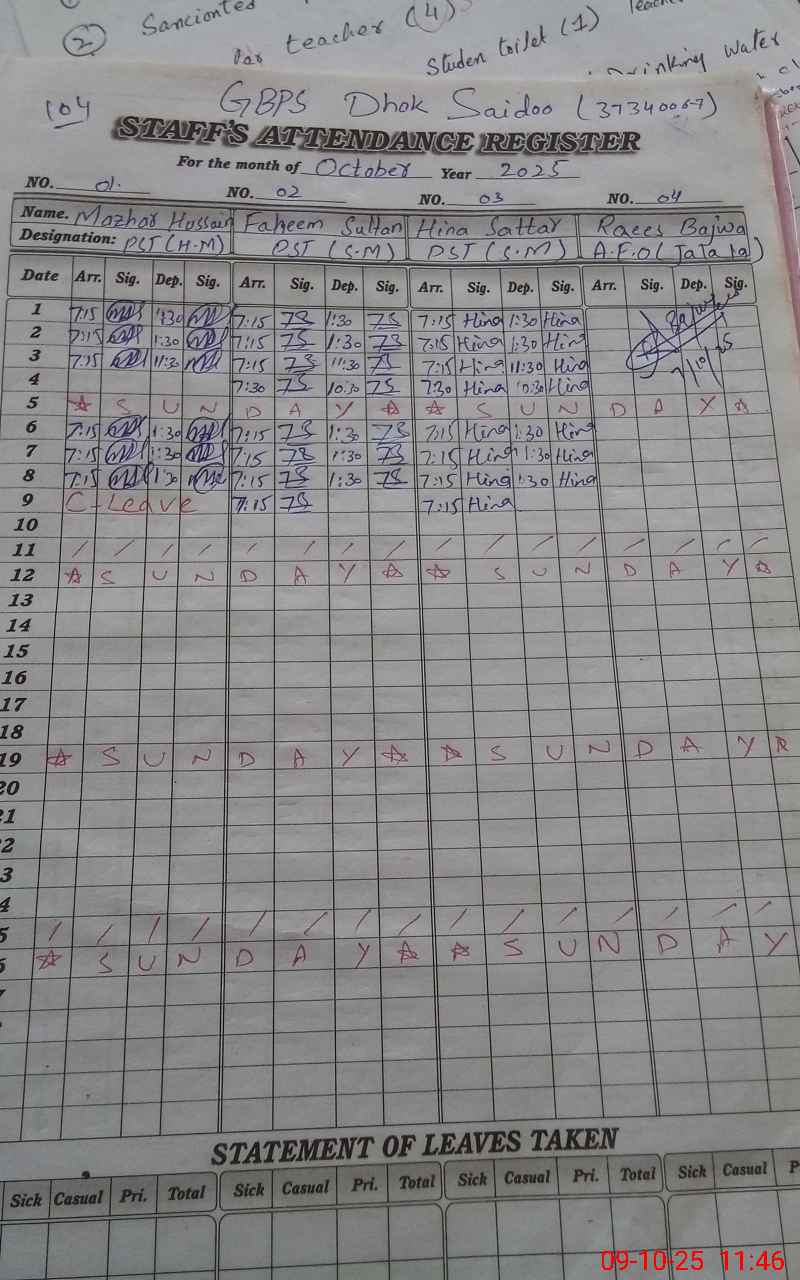 2 Sancionted
for teacher (4)
Studen toilet (1)
Drinking water
104 GBPS Dhok Saidoo (37340067)
STAFF'S ATTENDANCE REGISTER
For the month of October Year 2025
NO. 01. NO. 02 NO. 03 NO. 04
Name. Mazhar Hussain Faheem Sultan Hina Sattar Raees Bajwa
Designation: PST (H.M) PST (S.M) PST (S.M) A.E.O (Jalala)
Date Arr. Sig. Dep. Sig. Arr. Sig. Dep. Sig. Arr. Sig. Dep. Sig. Arr. Sig. Dep. Sig.
1 7:15 1:30 7:15 1:30 7:15 Hina 1:30 Hina Bajwa
2 7:15 1:30 7:15 1:30 7:15 Hina 1:30 Hina
3 7:15 11:30 7:15 11:30 7:15 Hina 11:30 Hina 7/10/25
4 7:30 10:30 7:30 Hina 10:30 Hina
5 ☆ S U N D A Y ☆ ☆ S U N D A Y ☆
6 7:15 1:30 7:15 1:30 7:15 Hina 1:30 Hina
7 7:15 1:30 7:15 1:30 7:15 Hina 1:30 Hina
8 7:15 1:30 7:15 1:30 7:15 Hina 1:30 Hina
9 C-Leave 7:15 7:15 Hina
10
11 / / / / / / / / / / / / / / / /
12 ☆ S U N D A Y ☆ ☆ S U N D A Y ☆
13
14
15
16
17
18
19 ☆ S U N D A Y ☆ ☆ S U N D A Y ☆
20
21
2
3
4
5 / / / / / / / / / / / / / / / /
6 ☆ S U N D A Y ☆ ☆ S U N D A Y
STATEMENT OF LEAVES TAKEN
Sick Casual Pri. Total Sick Casual Pri. Total Sick Casual Pri. Total Sick Casual P
09-10-25 11:46